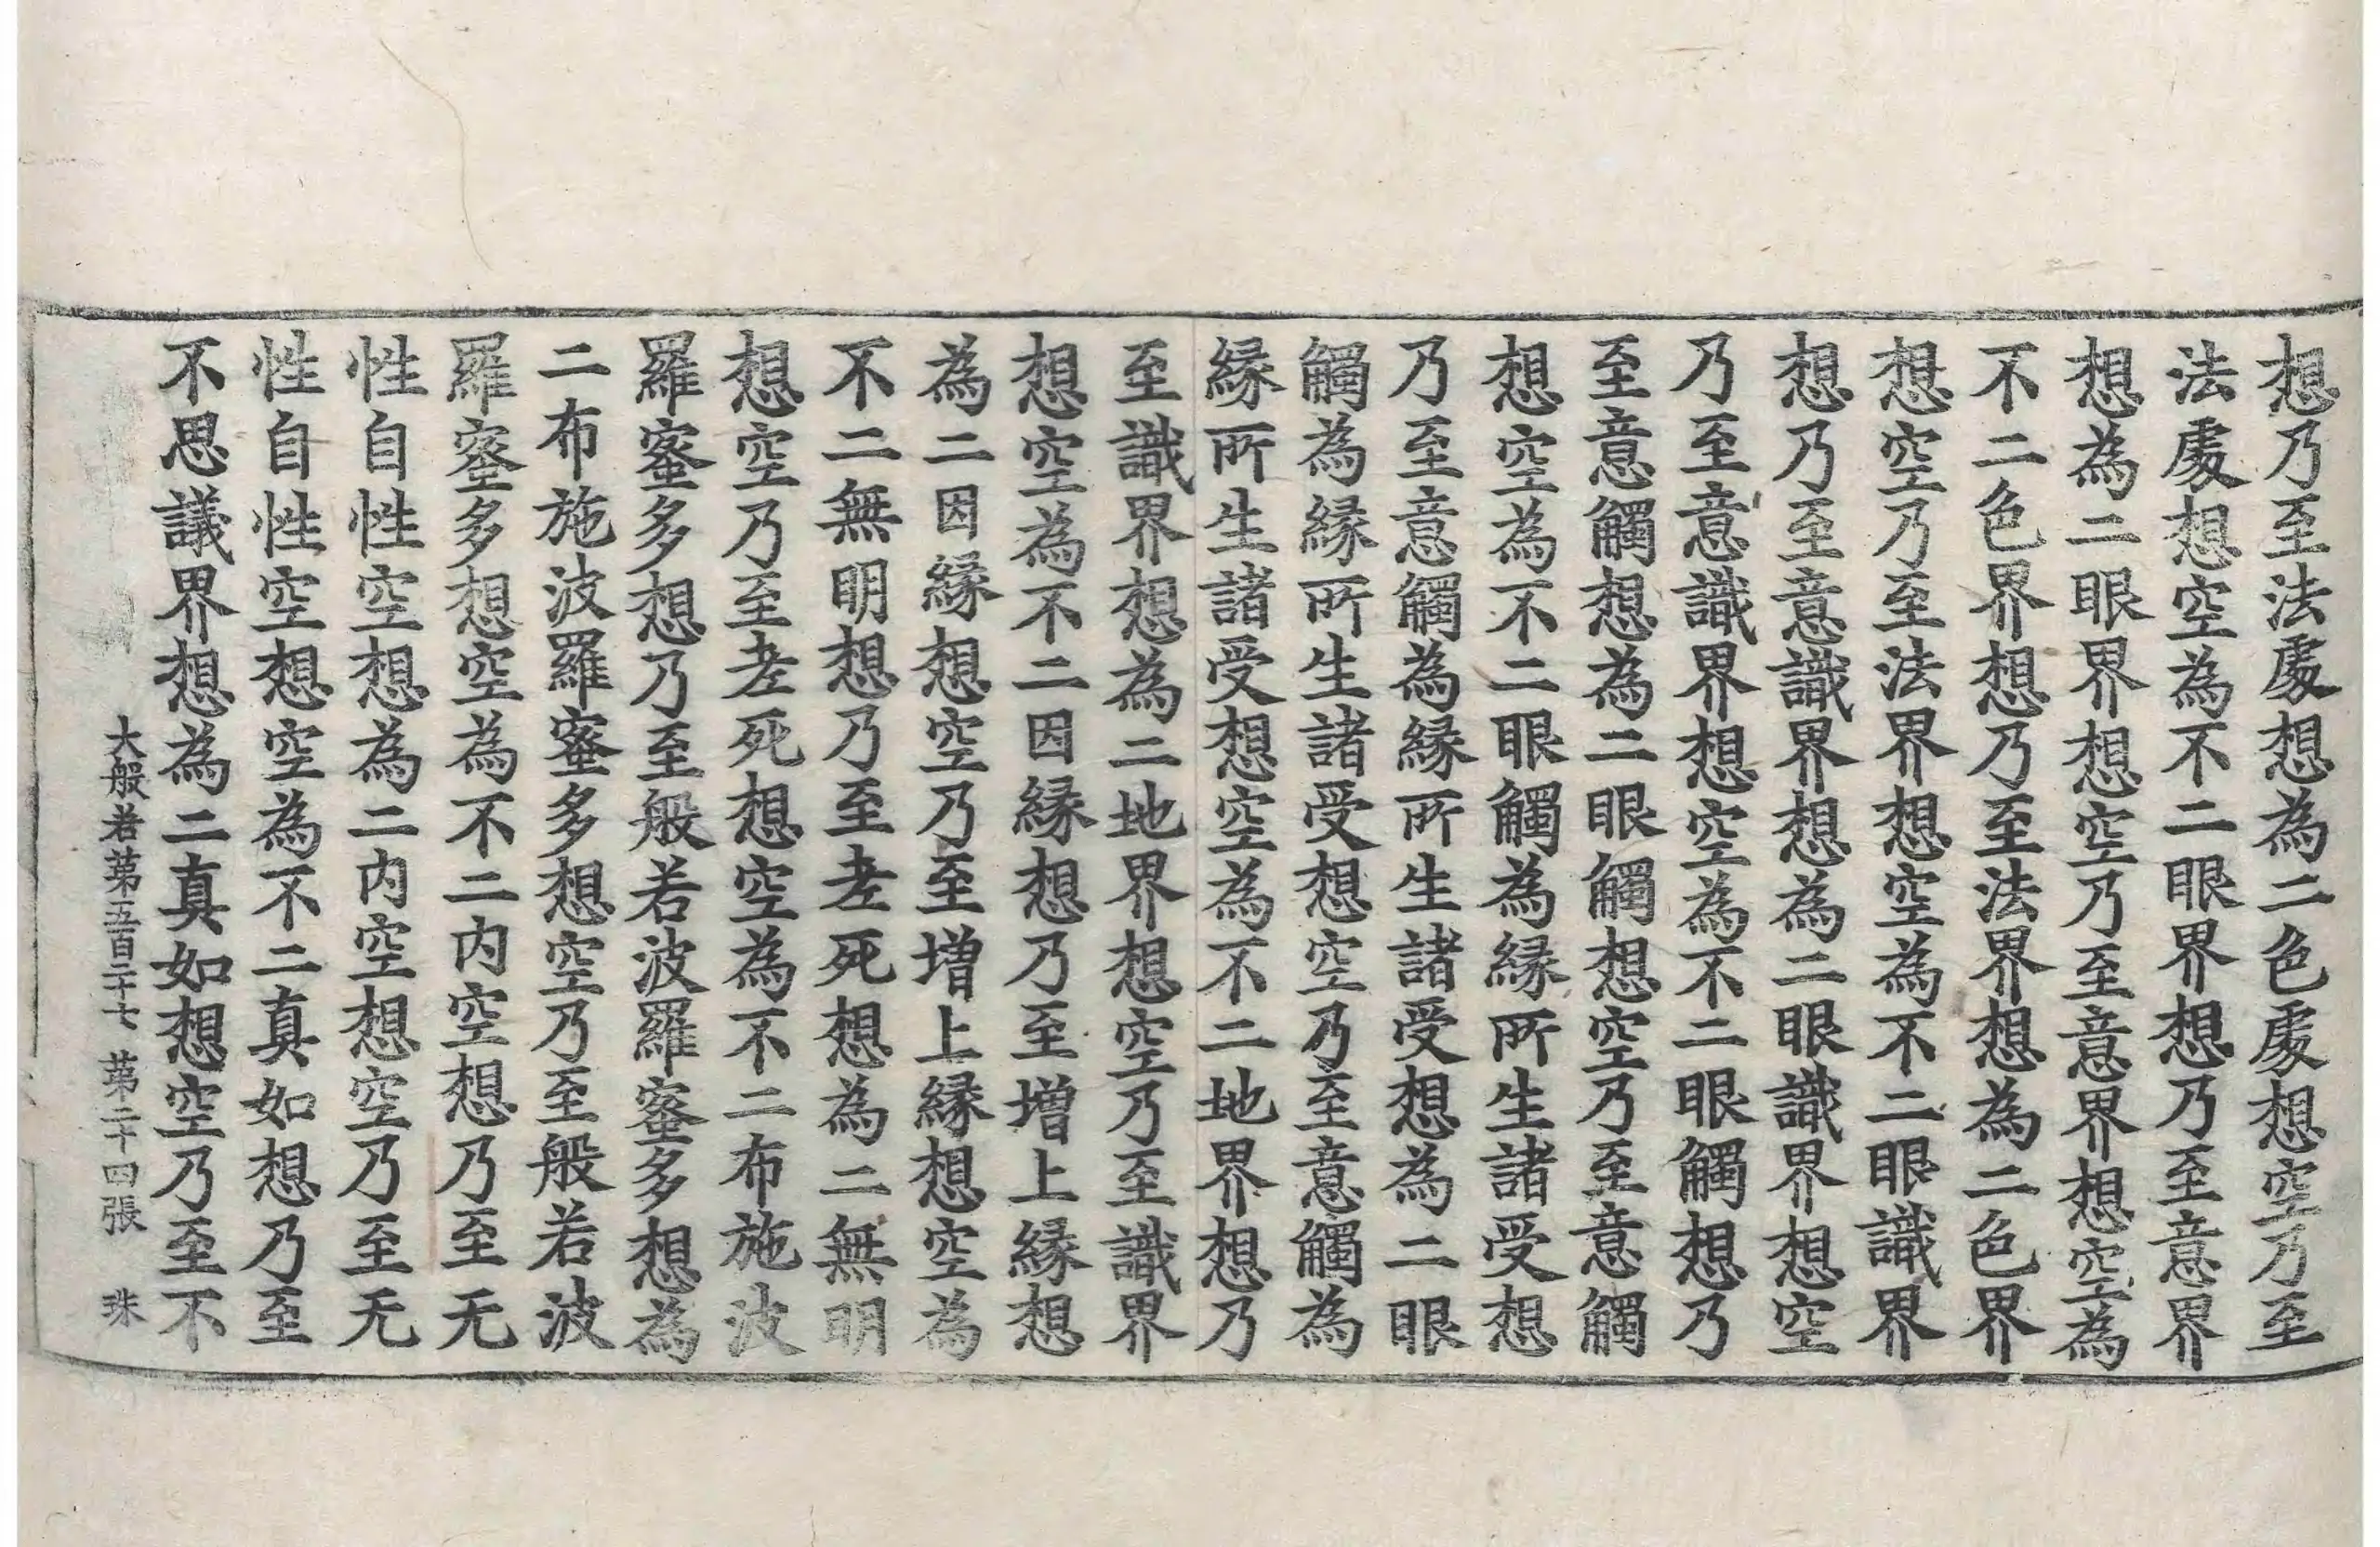 想乃至法處想為二色處想空乃至
法處想空為不二眼界想乃至意界
想為二眼界想空乃至意界想空為
不二色界想乃至法界想為二色界
想空乃至法界想空為不二眼識界
想乃至意識界想為二眼識界想空
乃至意識界想空為不二眼觸想乃
至意觸想為二眼觸想空乃至意觸
想空為不二眼觸為緣所生諸受想
乃至意觸為緣所生諸受想為二眼
觸為緣所生諸受想空乃至意觸為
緣所生諸受想空為不二地界想乃
至識界想為二地界想空乃至識界
想空為不二因緣想乃至增上緣想
為二因緣想空乃至增上緣想空為
不二無明想乃至老死想為二無明
想空乃至老死想空為不二布施波
羅蜜多想乃至般若波羅蜜多想為
二布施波羅蜜多想空乃至般若波
羅蜜多想空為不二內空想乃至无
性自性空想為二內空想空乃至无
性自性空想空為不二真如想乃至
不思議界想為二真如想空乃至不
大般若第五百二十七 第二十四張 珠